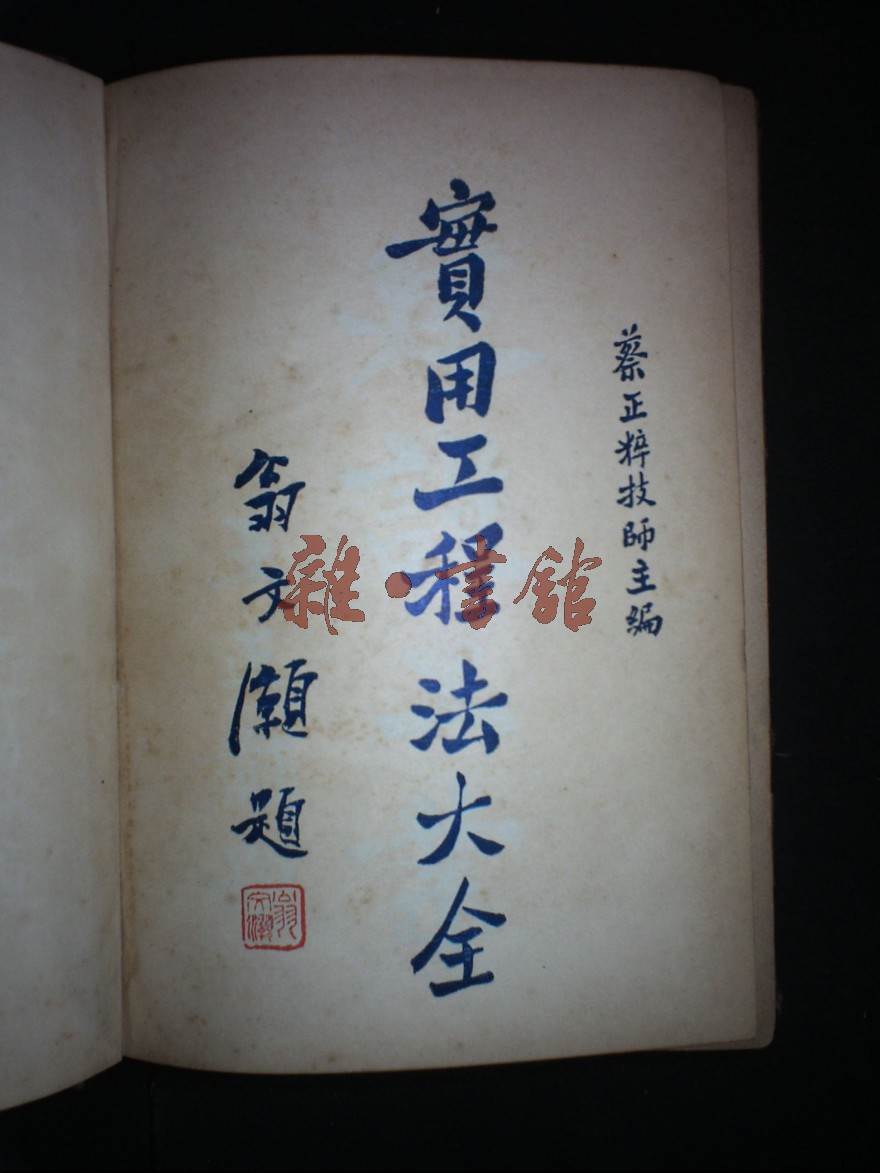 蔡正粹技師主編
實用工程法大全
翁文灝題
翁文灝
雜·書館